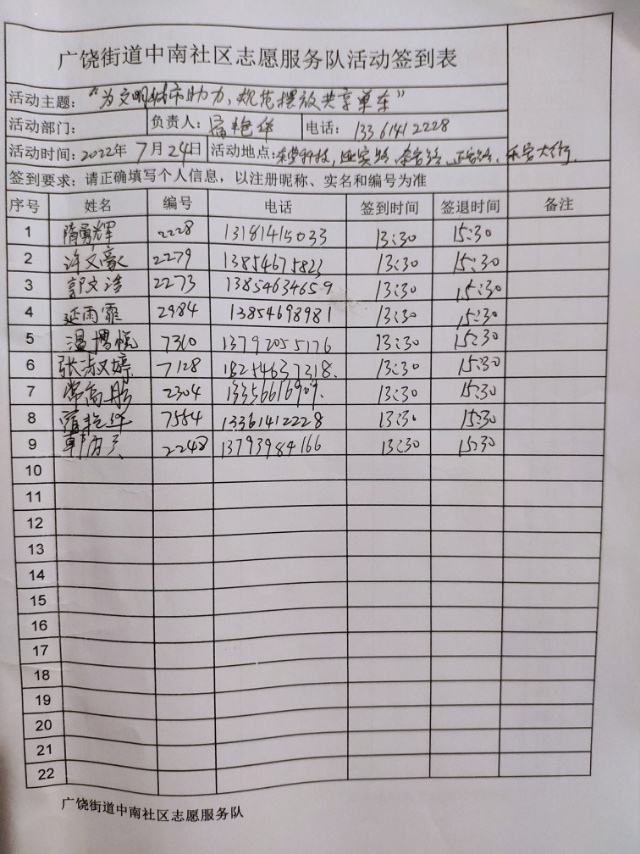 广饶街道中南社区志愿服务队活动签到表
活动主题：“为文明城市助力，规范摆放共享单车”
活动部门： 负责人： 电话：13361412228
活动时间：2022年7月24日 活动地点： 乐安大街
签到要求：请正确填写个人信息，以注册昵称、实名和编号为准
序号 姓名 编号 电话 签到时间 签退时间 备注
1 隋勇辉 2228 13181415033 13:30 15:30
2 许文豪 2279 13854675823 13:30 15:30
3 郭文浩 2273 13854634659 13:30 15:30
4 延雨霏 2984 13854698981 13:30 15:30
5 温 7310 13792055176 13:30 15:30
6 张淑婷 7128 18254637318 13:30 15:30
7 常 2304 13356616909 13:30 15:30
8 7554 13361412228 13:30 15:30
9 2248 13793984166 13:30 15:30
10
11
12
13
14
15
16
17
18
19
20
21
22
广饶街道中南社区志愿服务队